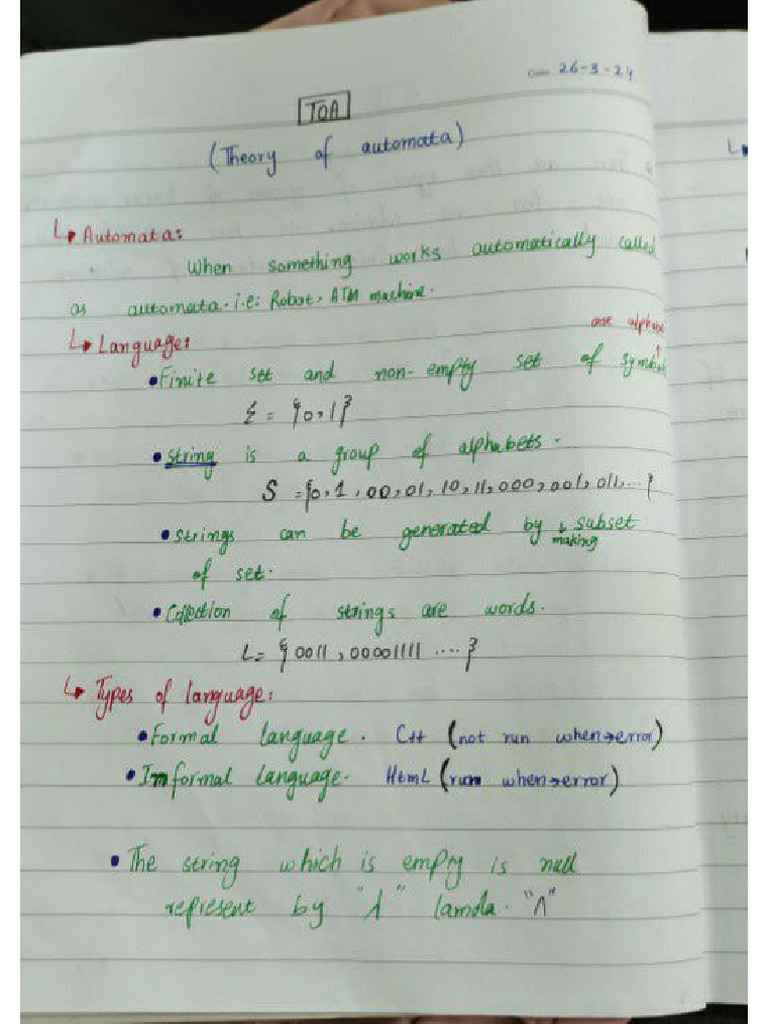 Date: 26-3-24
TOA
(Theory of automata)
↳ Automata:
When something works automatically called
as automata. i.e: Robot, ATM machine.
are alphabe
↳ Language:
• Finite set and non-empty set of symbols
Σ = {0,1}
• string is a group of alphabets.
S = {0,1,00,01,10,11,000,001,011,...}
• strings can be generated by making subset
of set.
• Collection of strings are words.
L= {0011,00001111 ....}
↳ Types of language:
• Formal language. C++ (not run when→error)
• Informal language. HtmL (run when→error)
• The string which is empty is null
represent by "Λ" lamda. "Λ"